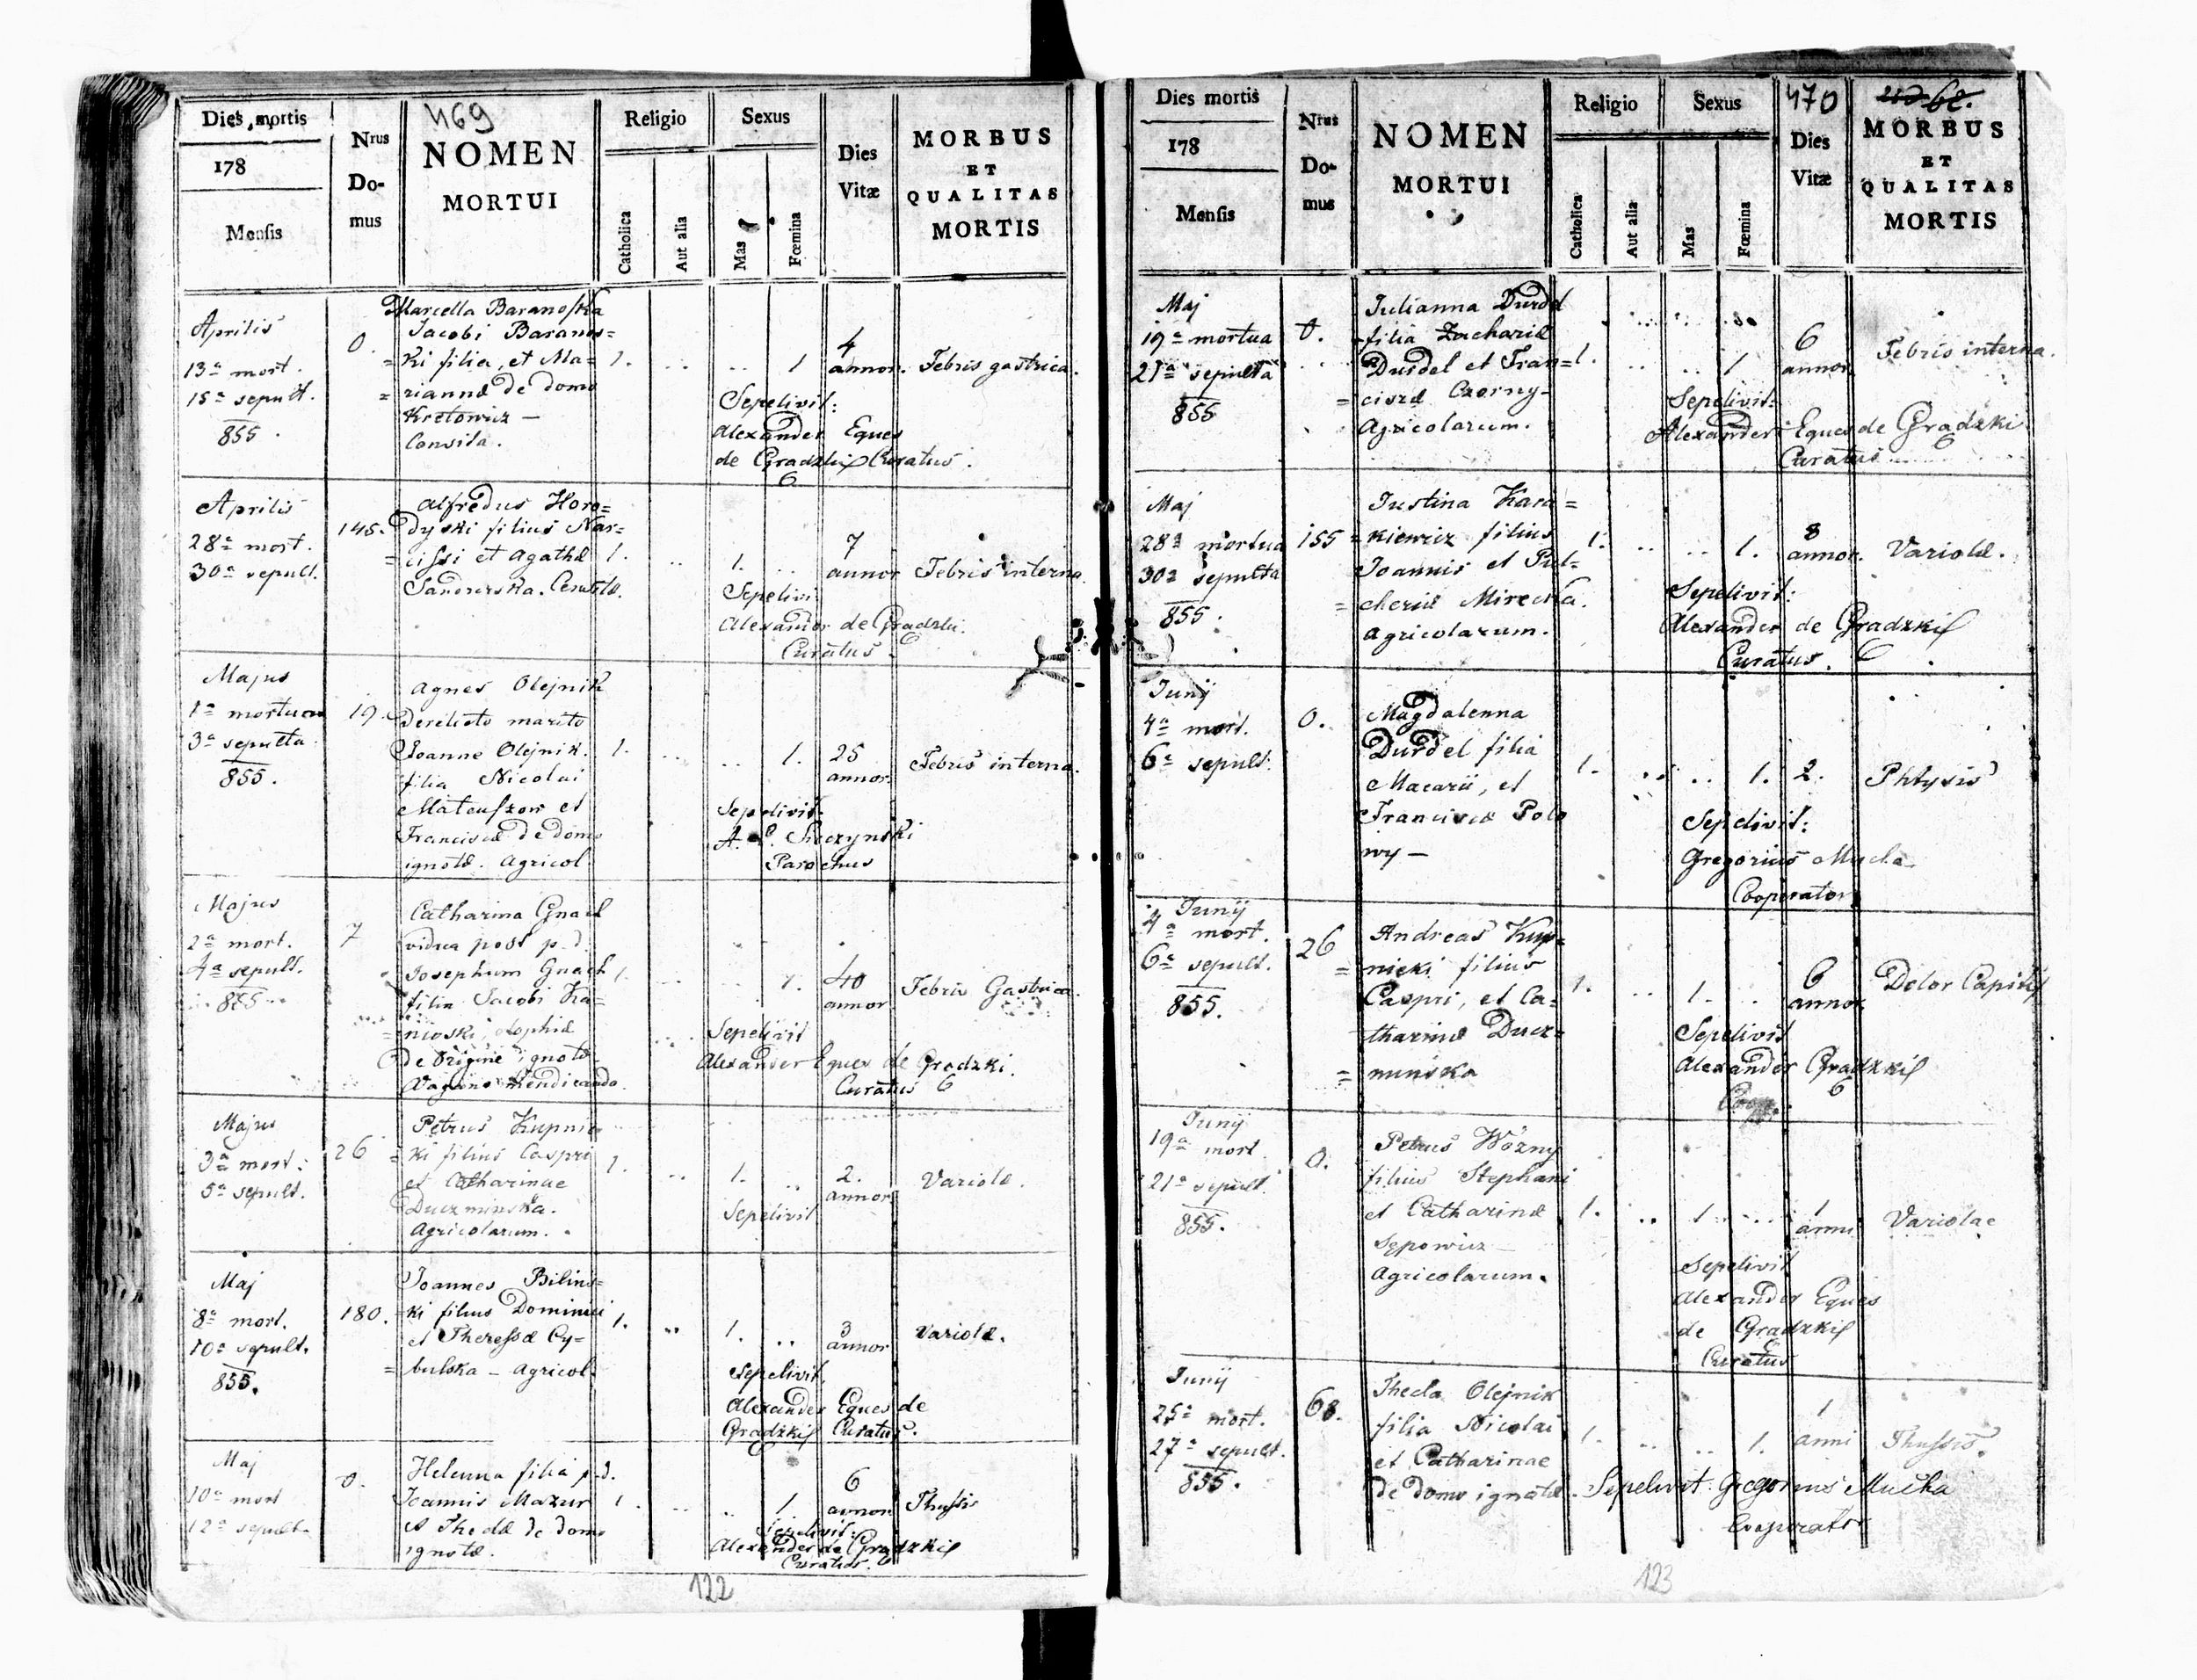 469
Dies mortis
178
Mensis
Nrus
Do-
mus
NOMEN
MORTUI
Religio
Catholica
Aut alia
Sexus
Mas
Fœmina
Dies
Vitæ
MORBUS
ET
QUALITAS
MORTIS
Aprilis
13a mort.
15a sepult.
855.
0.
Marcella Baranoſka
Jacobi Baranos=
=ki filia, et Ma=
=riannæ de domo
Kretowicz —
Consita.
1.
..
..
1
4
annor.
Febris gastrica.
Sepelivit:
Alexander Eques
de Gradzki Curatus.
Aprilis
28a mort.
30a sepult.
145.
Alfredus Horo=
Dyski filius Nar=
=cissi et Agathæ
1.
..
1.
..
7
annor
Febris interna
Sepelivi
Alexander de Gradzki.
Curatus.
Majus
1a mortua
3a sepulta
855.
19.
Agnes Olejnik
derelicto marito
Joanne Olejnik.
filia Nicolai
Mateuſzow et
Franciscæ de domo
ignotæ. Agricol.
1.
..
..
1.
25
annor.
Febris interna.
Sepelivit:
Parochus
Majus
2a mort.
4a sepult.
855
7
Catharina Gnach
vidua post p. d.
Josephum Gnach
filia Jacobi Ka=
=nioski, Sophiæ
de origine ignotæ
1.
1.
40
annor
Febris Gastrica.
Sepelivit
Alexander Eques de Gradzki.
Curatus
Majus
3a mort:
5a sepult.
26
Petrus Kupnic=
=ki filius Caspri
et Catharinae
Duczminska.
Agricolarum.
1.
..
1.
..
2.
annor
Variolæ.
Sepelivit
Maj
8a mort.
10a sepult.
855.
180.
Joannes Bilins=
=ki filius Dominici
et Theressæ Cy=
=bulska — Agricol.
1.
..
1.
..
3
annor
Variolæ.
Sepelivit
Alexander Eques de
Gradzki Curatus.
Maj
10a mort
12a sepult.
0.
Helenna filia p.d.
Joannis Mazur
et Theclæ de domo
ignotæ.
1.
..
..
1.
6
annor
Thussis
Sepelivit:
Alexander de Gradzki
Curatus.
122
470
Dies mortis
178
Mensis
Nrus
Do-
mus
NOMEN
MORTUI
Religio
Catholica
Aut alia
Sexus
Mas
Fœmina
Dies
Vitæ
MORBUS
ET
QUALITAS
MORTIS
Maj
19a mortua
21a sepulta
855
0.
Julianna Durdel
filia Zachariæ
Durdel et Fran=
=ciszæ Czorny—
Agricolarum.
1.
..
..
1
6
annor.
Febris interna.
Sepelivit:
Alexander Eques de Gradzki
Curatus
Maj
28a mortua
30a sepulta
855.
155
Justina Kara=
=kiewicz filius
Joannis et Pul=
=cheriæ Mirecka.
Agricolarum.
1.
..
..
1.
8
annor.
Variolæ.
Sepelivit:
Alexander de Gradzki
Curatus.
Junij
4a mort.
6a sepult.
0.
Magdalenna
Durdel filia
Macarii, et
Franciscæ Polo
wy —
1.
..
..
1.
2.
Phtysis
Sepelivit:
Gregorius Mucha
Cooperator
Junij
4a mort.
6a sepult.
855.
26
Andreas Kup=
=nicki filius
Caspri, et Ca=
tharinæ Ducz=
=minska
1.
..
1.
..
6
annor.
Dolor Capitis
Sepelivit
Alexander Gradzki
Junij
19a mort
21a sepult.
855.
0.
Petrus Wozny
filius Stephani
et Catharinæ
Sępowicz —
Agricolarum.
1.
..
1
..
1
anni
Variolae
Sepelivit
Alexander Eques
de Gradzki
Curatus
Junij
25a mort.
27a sepult.
855.
68.
Thecla Olejnik
filia Nicolai
et Catharinae
de domo ignotæ.
1.
..
..
1.
1
anni
Thussis.
Sepelivit: Gregorius Mucha
Cooperator
123